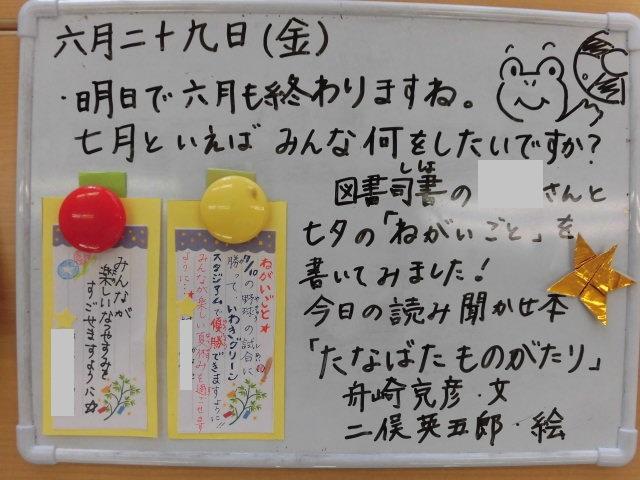 六月二十九日(金)
・明日で六月も終わりますね。
七月といえばみんな何をしたいですか?
図書司書の さんと
七夕の「ねがいごと」を
書いてみました!
今日の読み聞かせ本
「たなばたものがたり」
舟崎克彦・文
二俣英五郎・絵
みんなが
楽しいなつやすみを
すごせますように☆
ねがいごと★
7/10の野球の試合に
勝って、いわきグリーン
スタジアムで優勝できますように!!
みんなが楽しい夏休みを過ごせます
ように…